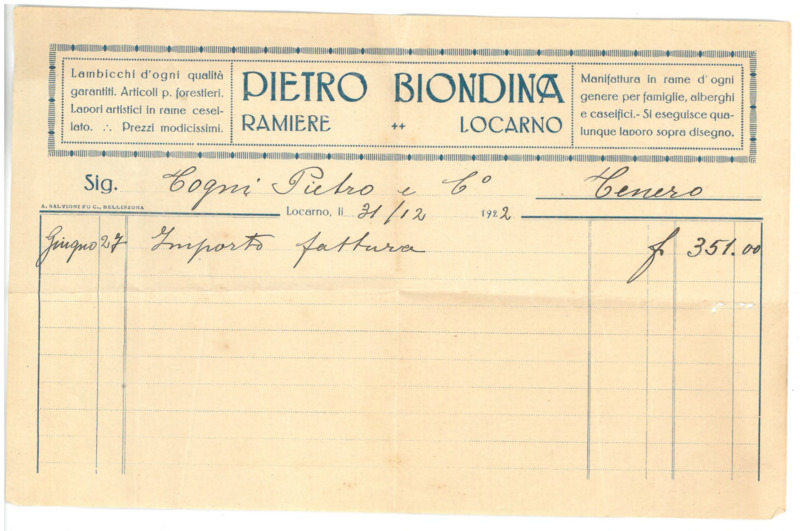 Lambicchi d'ogni qualità
garantiti. Articoli p. forestieri.
Lavori artistici in rame cesel-
lato. ∴ Prezzi modicissimi.
PIETRO BIONDINA
RAMIERE ++ LOCARNO
Manifattura in rame d'ogni
genere per famiglie, alberghi
e caseifici.- Si eseguisce qua-
lunque lavoro sopra disegno.
Sig. Togni Pietro e Cº Tenero
A. SALVIONI FU C., BELLINZONA
Locarno, li 31/12 1922
Giugno 27 Importo fattura f 351.00